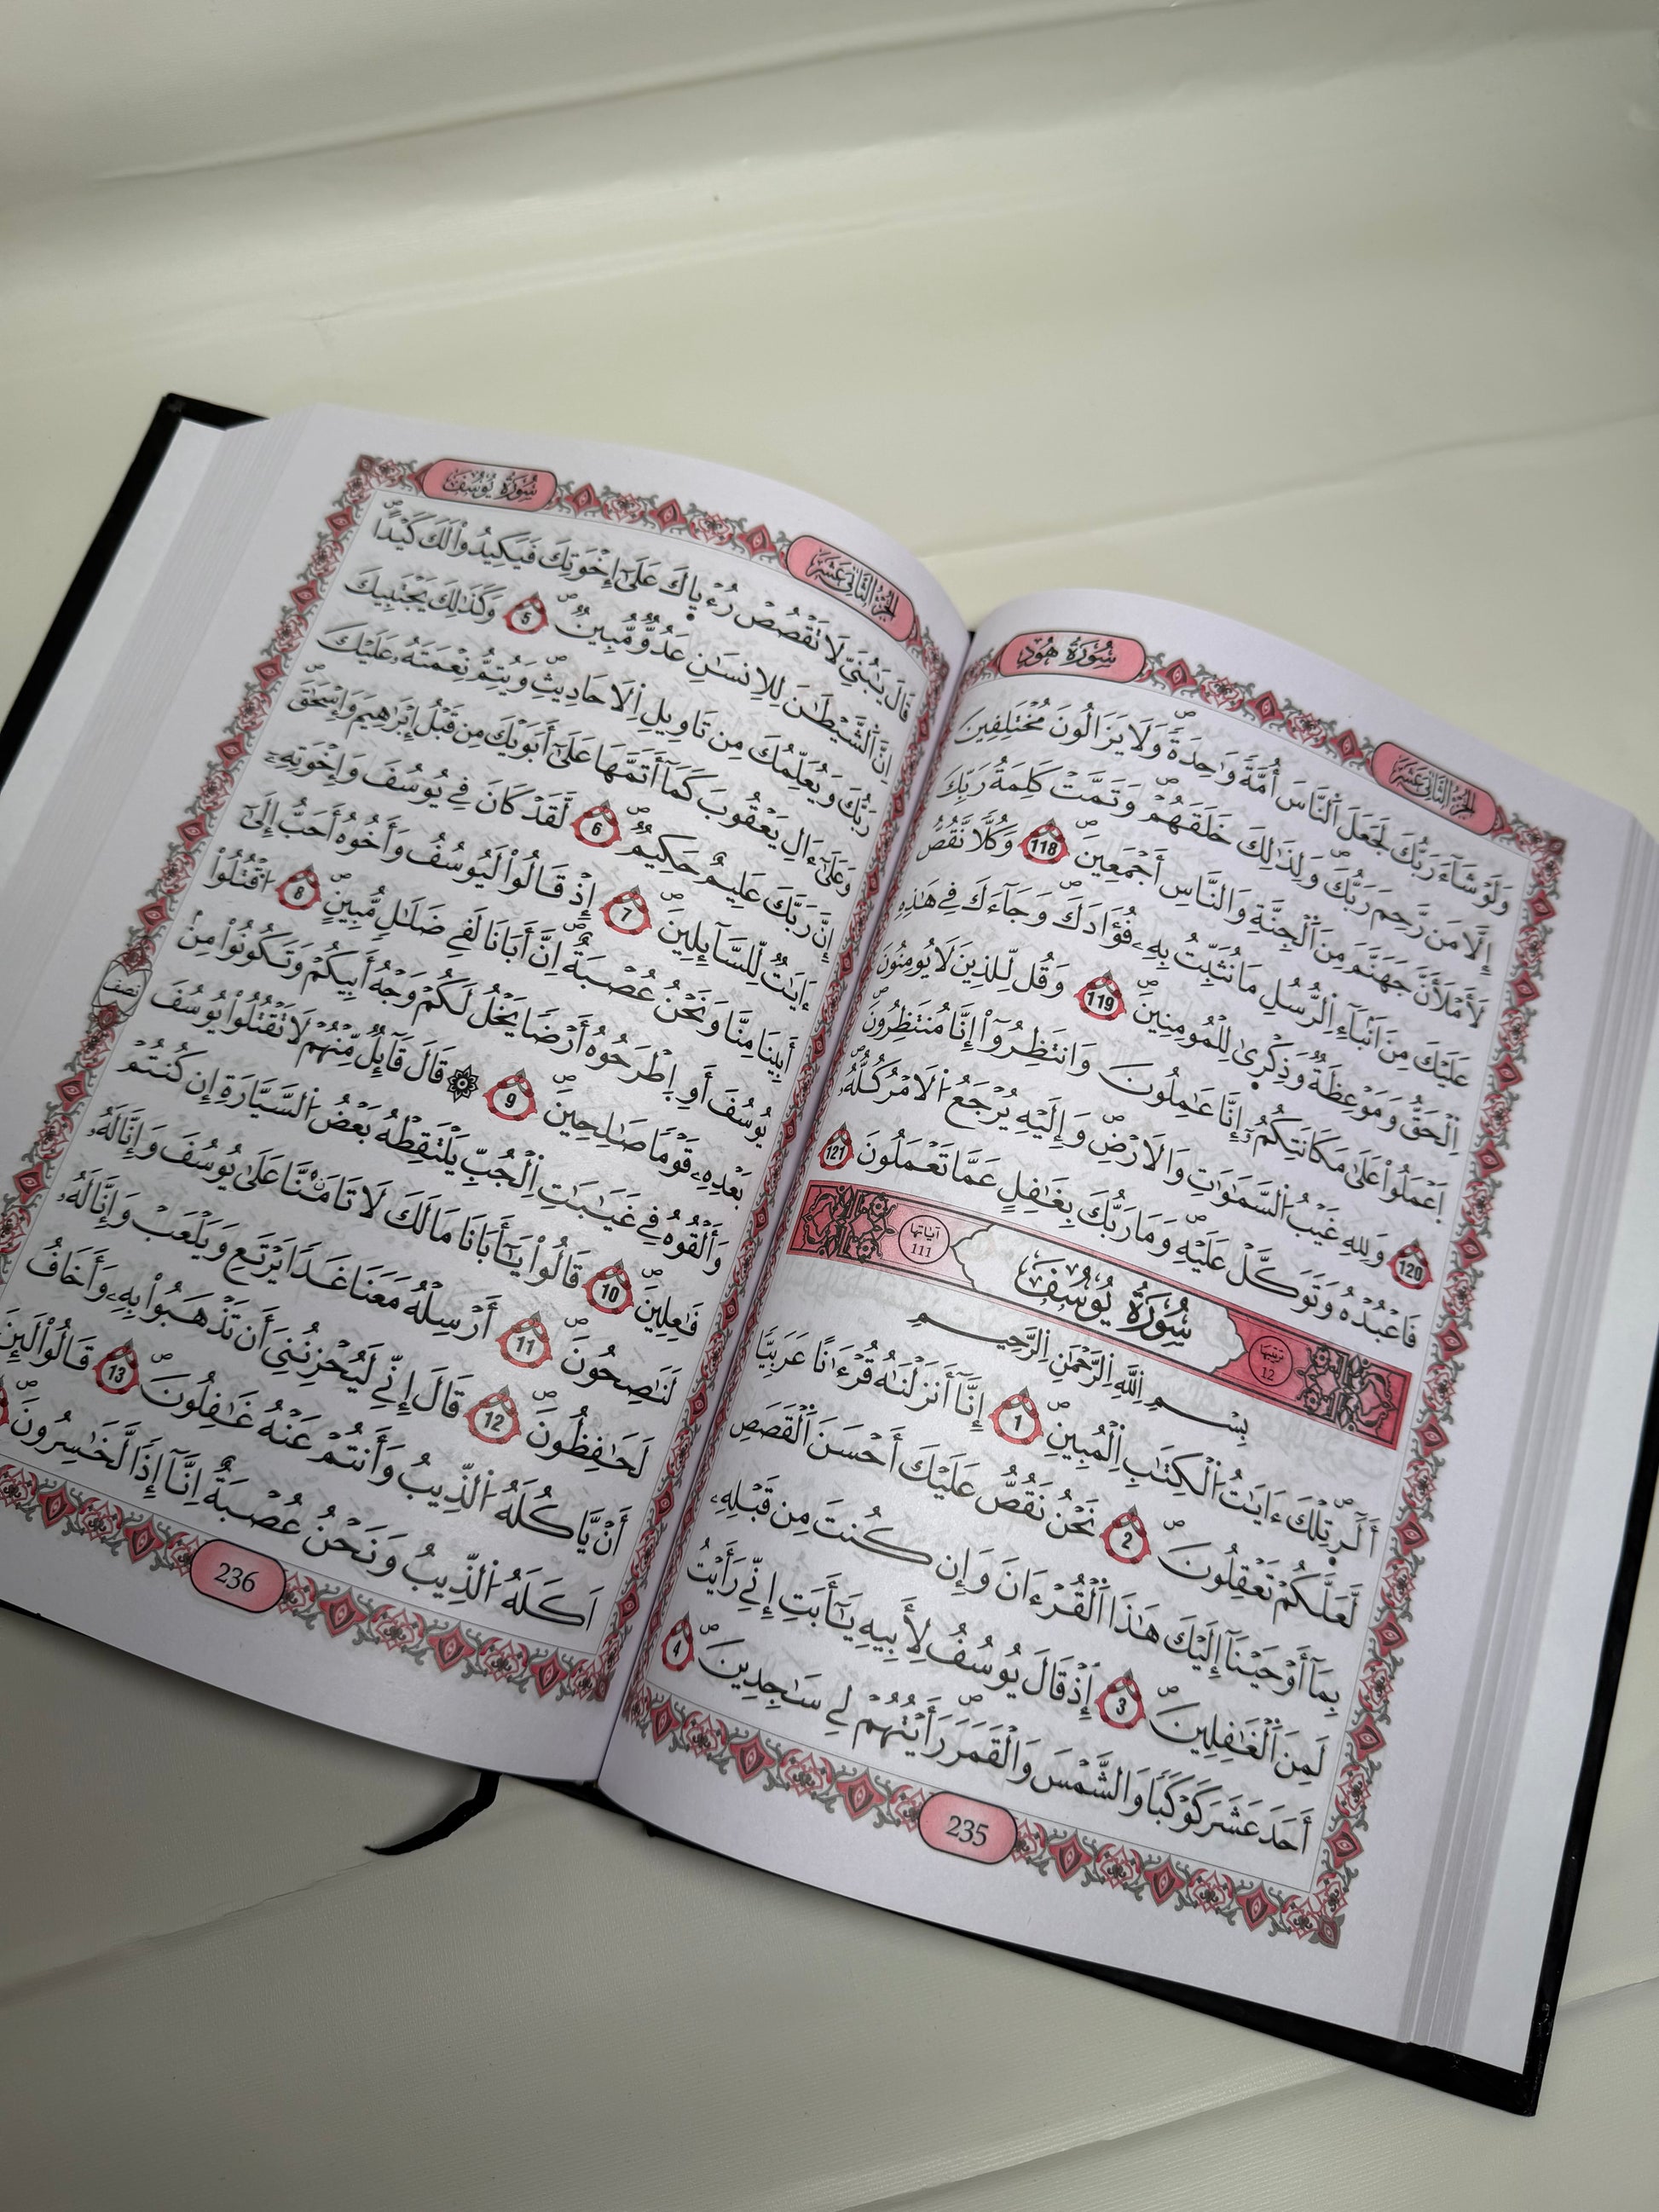 الجزء الثاني عشر
سُورَةُ هُودٍ
وَلَوْ شَآءَ رَبُّكَ لَجَعَلَ اَ۬لنَّاسَ أُمَّةٗ وَٰحِدَةٗۖ وَلَا يَزَالُونَ مُخْتَلِفِينَ
إِلَّا مَن رَّحِمَ رَبُّكَۖ وَلِذَٰلِكَ خَلَقَهُمْۖ وَتَمَّتْ كَلِمَةُ رَبِّكَ
لَأَمْلَأَنَّ جَهَنَّمَ مِنَ اَ۬لْجِنَّةِ وَالنَّاسِ أَجْمَعِينَۖ 118 وَكُلّٗا نَّقُصُّ
عَلَيْكَ مِنَ اَنۢبَآءِ اِ۬لرُّسُلِ مَا نُثَبِّتُ بِهِۦ فُؤَادَكَۖ وَجَآءَكَ فِي هَٰذِهِ
اِ۬لْحَقُّ وَمَوْعِظَةٞ وَذِكْرىٰ لِلْمُومِنِينَۖ 119 وَقُل لِّلذِينَ لَا يُومِنُونَ
اَ۪عْمَلُواْ عَلَىٰ مَكَانَتِكُمُۥٓ إِنَّا عَٰمِلُونَ وَانتَظِرُوٓاْ إِنَّا مُنتَظِرُونَۖ
120 وَلِلهِ غَيْبُ اُ۬لسَّمَٰوَٰتِ وَالَارْضِۖ وَإِلَيْهِ يُرْجَعُ اُ۬لَامْرُ كُلُّهُۥۖ
فَاعْبُدْهُ وَتَوَكَّلْ عَلَيْهِۖ وَمَا رَبُّكَ بِغَٰفِلٍ عَمَّا تَعْمَلُونَ 121
ترتيبها 12 سُورَةُ يُوسُفَ آياتها 111
بِسْمِ اِ۬للَّهِ اِ۬لرَّحْمَٰنِ اِ۬لرَّحِيمِ
أَلَٓرۖ تِلْكَ ءَايَٰتُ اُ۬لْكِتَٰبِ اِ۬لْمُبِينِۖ 1 إِنَّآ أَنزَلْنَٰهُ قُرْءَٰناً عَرَبِيّٗا
لَّعَلَّكُمْ تَعْقِلُونَۖ 2 نَحْنُ نَقُصُّ عَلَيْكَ أَحْسَنَ اَ۬لْقَصَصِ
بِمَآ أَوْحَيْنَآ إِلَيْكَ هَٰذَا اَ۬لْقُرْءَانَ وَإِن كُنتَ مِن قَبْلِهِۦ
لَمِنَ اَ۬لْغَٰفِلِينَۖ 3 إِذْ قَالَ يُوسُفُ لِأَبِيهِ يَٰٓأَبَتِ إِنِّي رَأَيْتُ
أَحَدَ عَشَرَ كَوْكَباٗ وَالشَّمْسَ وَالْقَمَرَۖ رَأَيْتُهُمْ لِي سَٰجِدِينَۖ 4
235
الجزء الثاني عشر
سُورَةُ يُوسُفَ
قَالَ يَٰبُنَيِّ لَا تَقْصُصْ رُءْياكَ عَلَىٰٓ إِخْوَتِكَ فَيَكِيدُواْ لَكَ كَيْداًۖ
اِنَّ اَ۬لشَّيْطَٰنَ لِلِانسَٰنِ عَدُوّٞ مُّبِينٞۖ 5 وَكَذَٰلِكَ يَجْتَبِيكَ
رَبُّكَ وَيُعَلِّمُكَ مِن تَاوِيلِ اِ۬لَاحَادِيثِۖ وَيُتِمُّ نِعْمَتَهُۥ عَلَيْكَ
وَعَلَىٰٓ ءَالِ يَعْقُوبَ كَمَآ أَتَمَّهَا عَلَىٰٓ أَبَوَيْكَ مِن قَبْلُ إِبْرَٰهِيمَ وَإِسْحَٰقَۖ
إِنَّ رَبَّكَ عَلِيمٌ حَكِيمٞۖ 6 لَّقَدْ كَانَ فِي يُوسُفَ وَإِخْوَتِهِۦٓ
ءَايَٰتٞ لِّلسَّآئِلِينَۖ 7 إِذْ قَالُواْ لَيُوسُفُ وَأَخُوهُ أَحَبُّ إِلَىٰٓ
أَبِينَا مِنَّا وَنَحْنُ عُصْبَةٌۖ اِنَّ أَبَانَا لَفِي ضَلَٰلٖ مُّبِينٍۖ 8 اُ۟قْتُلُواْ
يُوسُفَ أَوِ اِ۪طْرَحُوهُ أَرْضاٗ يَخْلُ لَكُمْ وَجْهُ أَبِيكُمْ وَتَكُونُواْ مِنۢ
نصف
بَعْدِهِۦ قَوْماٗ صَٰلِحِينَۖ 9 ۞ قَالَ قَآئِلٞ مِّنْهُمْ لَا تَقْتُلُواْ يُوسُفَ
وَأَلْقُوهُ فِي غَيَٰبَٰتِ اِ۬لْجُبِّ يَلْتَقِطْهُ بَعْضُ اُ۬لسَّيَّارَةِ إِن كُنتُمْ
فَٰعِلِينَۖ 10 قَالُواْ يَٰٓأَبَانَا مَا لَكَ لَا تَامَ۬نَّا عَلَىٰ يُوسُفَ وَإِنَّا لَهُۥ
لَنَٰصِحُونَۖ 11 أَرْسِلْهُ مَعَنَا غَداٗ يَرْتَعِ وَيَلْعَبْ وَإِنَّا لَهُۥ
لَحَٰفِظُونَۖ 12 قَالَ إِنِّي لَيُحْزِنُنِيَ أَن تَذْهَبُواْ بِهِۦ وَأَخَافُ
أَنْ يَّاكُلَهُ اُ۬لذِّيبُ وَأَنتُمْ عَنْهُ غَٰفِلُونَۖ 13 قَالُواْ لَئِنَ
اَكَلَهُ اُ۬لذِّيبُ وَنَحْنُ عُصْبَةٌ اِنَّآ إِذاٗ لَّخَٰسِرُونَۖ
236